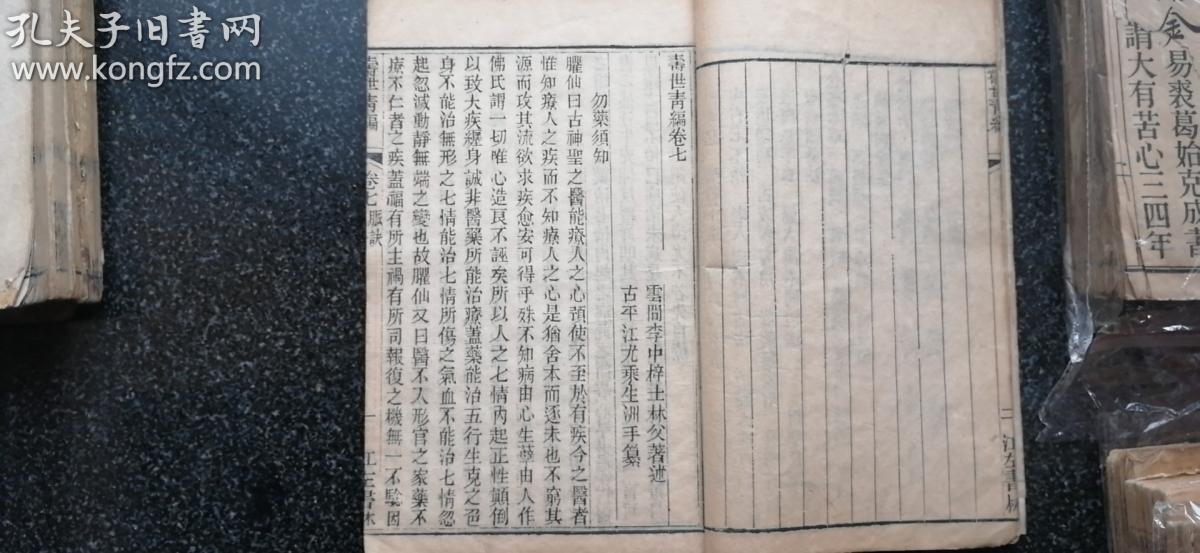 孔夫子旧书网
www.kongfz.com
金易裘葛始克成書
請大有苦心三四年
壽世青編
二 江左書林
壽世青編卷七
雲間李中梓士材父著述
古平江尤乘生洲手纂
勿藥須知
臞仙曰古神聖之醫能療人之心預使不至於有疾今之醫者
惟知療人之疾而不知療人之心是猶舍本而逐末也不窮其
源而攻其流欲求疾愈安可得乎殊不知病由心生孽由人作
佛氏謂一切唯心造良不誣矣所以人之七情內起正性顛倒
以致大疾纏身誠非醫藥所能治療蓋藥能治五行生克之色
身不能治無形之七情能治七情所傷之氣血不能治七情忽
起忽滅動靜無端之變也故臞仙又曰醫不入形官之家藥不
療不仁者之疾蓋福有所主禍有所司報復之機無一不驗因
壽世青編 卷七脈訣 一 江左書林